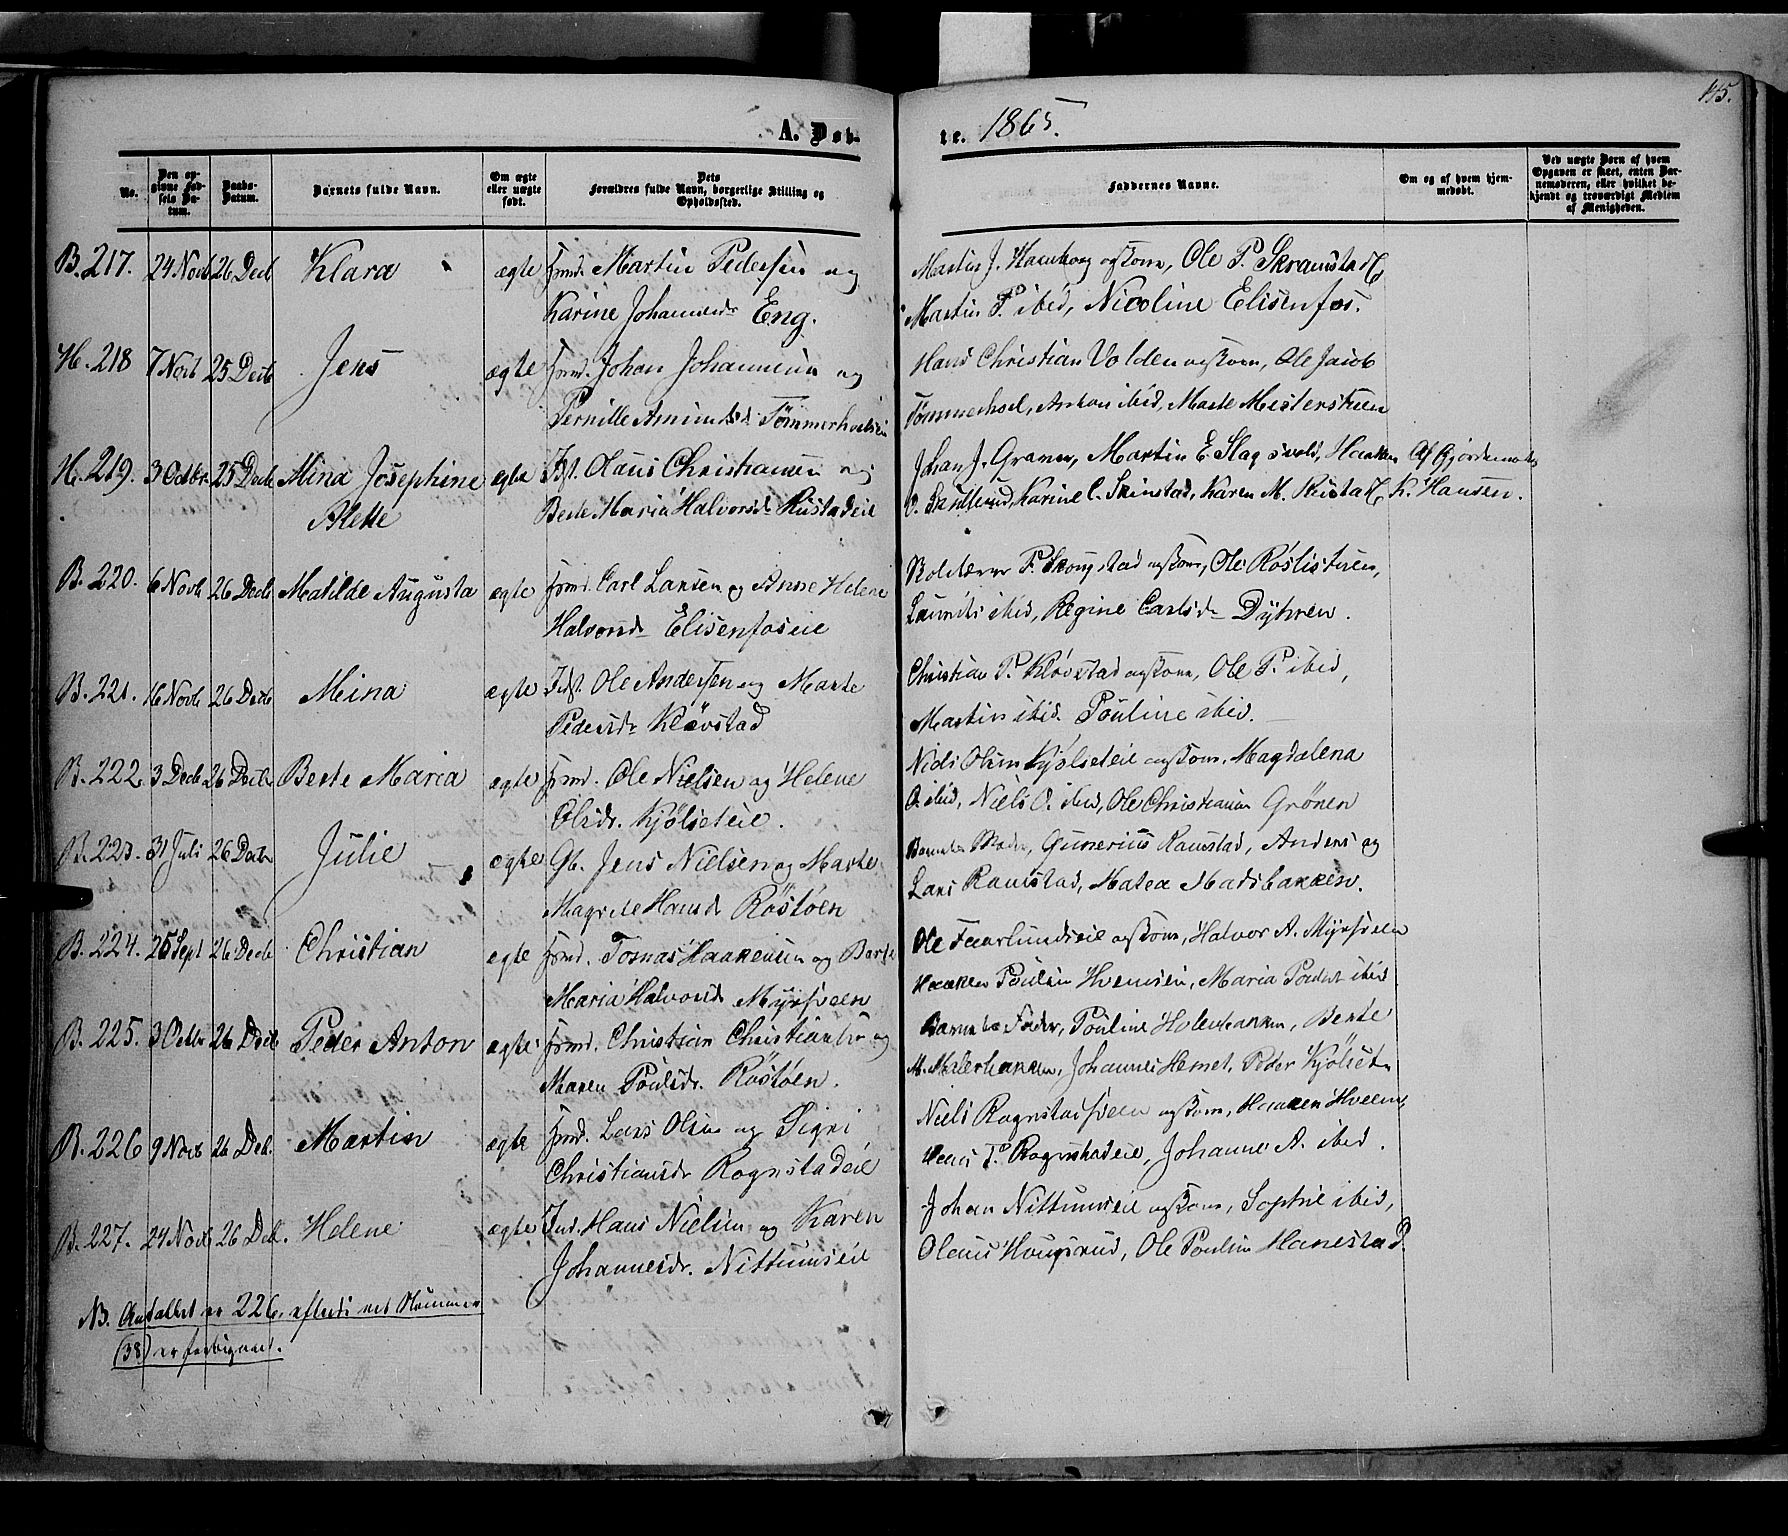 145.
A. Døb-
te. 1865.
No.
Den op-
givne Fød-
sels Da-
tum.
Daabs-
Datum.
Barnets fulde Navn.
Om ægte
eller uægte
født.
Dets
Forældres fulde Navn, borgerlige Stilling og
Opholdssted.
Faddernes Navne.
Om og af hvem hjem-
medøbt.
Ved uægte Børn af hvem
Opgaven er skeet, enten Bar-
nemoderen, eller hvilket be-
kjendt og troværdigt Medlem
af Menigheden.
B. 217. 24 Novb 26 Decb Klara ægte Huusmd. Martin Pedersen og
Karine Johannesdr Eng.
Martin J. Hornborg og Kone, Ole P. Skramstad
Martin P. ibid, Nicoline Elisenfos.
H. 218 7 Novb 25 Decb Jens ægte Johan Johannesen og
Pernille Amundsd Tømmerholseie
Hans Christian Volden og Kone, Ole Jacob
Tømmerhol, Anton ibid, Marte Mesterstuen
H. 219. 3 Octbr 25 Decb Mina Josephine ægte Olaus Christiansen og
Alette
Berte Maria Halvorsd Rustadeie
Johan J. Graven, Martin E. Slagsvold, Haaken
O. Karine C. Skinstad, Karen M. Rustad
Af Gjordemoder
K. Hansen.
B. 220. 6 Novb 26 Decb Matilde Augusta ægte Carl Larsen og Anne Helene
Halvorsd Elisenfoseie
P. Skougstad og Kone, Ole Röslistuen,
Laurits ibid, Regine Carlsd Dyhren.
B. 221. 16 Novb 26 Decb Mina ægte Ole Andersen og Marte
Pedersdr Klövstad
Christian P. Klövstad og Kone, Ole P. ibid,
Martin ibid. Pouline ibid.
B. 222. 3 Decb 26 Decb Berte Maria ægte Ole Nielsen og Helene
Olsdr. Kjölseteie.
Niels Olsen Kjölseteie og Kone, Magdalena
O. ibid, Niels O. ibid, Ole Christiansen Grönen
B. 223. 31 Juli 26 Decb Julie ægte Gb. Jens Nielsen og Marte
Magrete Hansd Röstöen
Barnets Moder, Gunerius Ramstad, Anders og
Lars Ramstad, Matea Madsbakken.
B. 224. 25 Sept 26 Decb Christian ægte Tosnas Haakensen og Berte
Maria Halvorsd Myrsveen
Ole Faarlundseie og Kone, Halvor A. Myrsveen
Haaken Poulsen Hvemsen, Maria Poulsd ibid
B. 225. 3 Octbr 26 Decb Peder Anton ægte Christian Christiansen og
Maren Poulsdr. Röstöen.
Barnets Fader, Pouline Holenbakken, Berte
M. Malerbakken, Johannes Hemet, Peder Kjölset
B. 226 9 Novb 26 Dec. Martin ægte Lars Olsen og Sigri
Christiansdr Rognstadeie
Niels Rognstadsveen og Kone, Haaken Hveem,
P. Rognstadeie, Johanne A. ibid.
B. 227. 24 Novb 26 Dec. Helene ægte Ind. Hans Nielsen og Karen
Johannesdr. Nittumseie
Johan Nittumseie og Kone, Sophie ibid,
Olaus Hougsrud, Ole Poulsen Hanestad.
NB. Antallet er 226, eftersom Nummer
(38) er forbigaaet.